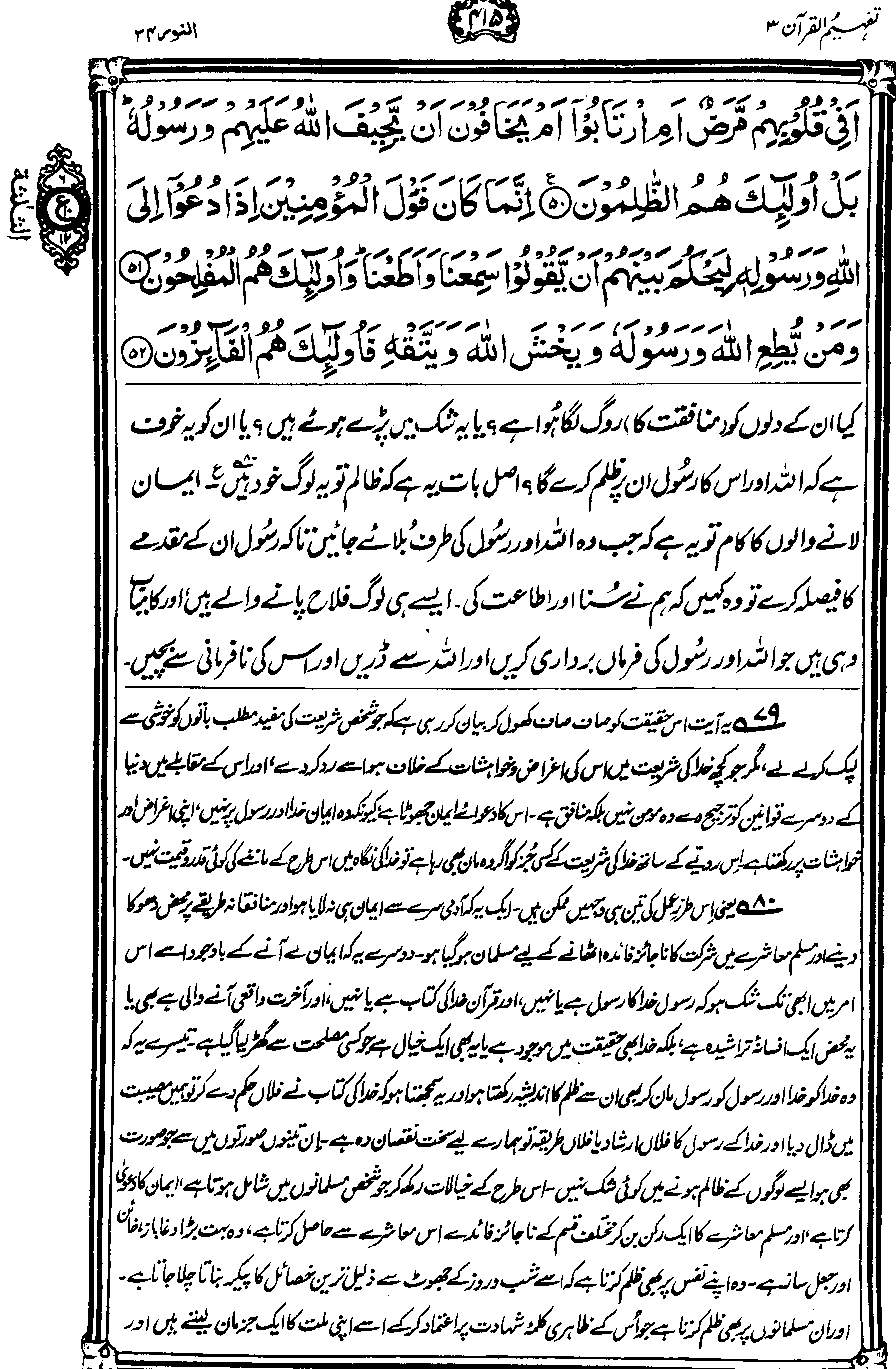 تفہیم القرآن ۳
۴۱۵
النور ۲۴
اَفِیْ قُلُوْبِهِمْ مَّرَضٌ اَمِ ارْتَابُوْۤا اَمْ یَخَافُوْنَ اَنْ یَّحِیْفَ اللّٰهُ عَلَیْهِمْ وَ رَسُوْلُهٗؕ
بَلْ اُولٰٓىِٕكَ هُمُ الظّٰلِمُوْنَ۠ ﴿۵۰﴾ اِنَّمَا كَانَ قَوْلَ الْمُؤْمِنِیْنَ اِذَا دُعُوْۤا اِلَی
اللّٰهِ وَ رَسُوْلِهٖ لِیَحْكُمَ بَیْنَهُمْ اَنْ یَّقُوْلُوْا سَمِعْنَا وَ اَطَعْنَاؕ وَ اُولٰٓىِٕكَ هُمُ الْمُفْلِحُوْنَ ﴿۵۱﴾
وَ مَنْ یُّطِعِ اللّٰهَ وَ رَسُوْلَهٗ وَ یَخْشَ اللّٰهَ وَ یَتَّقْهِ فَاُولٰٓىِٕكَ هُمُ الْفَآىِٕزُوْنَ ﴿۵۲﴾
ع
الثلثة
کیا ان کے دلوں کو (منافقت کا) روگ لگا ہُوا ہے؟ یا یہ شک میں پڑے ہوئے ہیں؟ یا ان کو یہ خوف
ہے کہ اللہ اور اس کا رسُول ان پر ظلم کرے گا؟ اصل بات یہ ہے کہ ظالم تو یہ لوگ خود ہیں۸۰ ع ایمان
لانے والوں کا کام تو یہ ہے کہ جب وہ اللہ اور رسُول کی طرف بُلائے جائیں تاکہ رسُول ان کے مقدمے
کا فیصلہ کرے تو وہ کہیں کہ ہم نے سُنا اور اطاعت کی۔ ایسے ہی لوگ فلاح پانے والے ہیں، اور کامیاب
وہی ہیں جو اللہ اور رسُول کی فرماں برداری کریں اور اللہ سے ڈریں اور اس کی نافرمانی سے بچیں۔
۷۹ یہ آیت اس حقیقت کو صاف صاف کھول کر بیان کر رہی ہے کہ جو شخص شریعت کی مفید مطلب باتوں کو خوشی سے
لپک کر لے لے، مگر جو کچھ خدا کی شریعت میں اس کی اغراض و خواہشات کے خلاف ہو اسے رد کر دے، اور اس کے مقابلے میں دنیا
کے دوسرے قوانین کو ترجیح دے وہ مومن نہیں بلکہ منافق ہے۔ اس کا دعوائے ایمان جھوٹا ہے، کیونکہ وہ ایمان خدا اور رسول پر نہیں، اپنی اغراض اور
خواہشات پر رکھتا ہے۔ اِس رویّے کے ساتھ خدا کی شریعت کے کسی جُز کو اگر وہ مان بھی رہا ہے تو خدا کی نگاہ میں اس طرح کے ماننے کی کوئی قدر و قیمت نہیں۔
۸۰ یعنی اِس طرزِ عمل کی تین ہی وجہیں ممکن ہیں۔ ایک یہ کہ آدمی سرے سے ایمان ہی نہ لایا ہو اور منافقانہ طریقے پر محض دھوکا
دینے اور مسلم معاشرے میں شرکت کا ناجائز فائدہ اٹھانے کے لیے مسلمان ہو گیا ہو۔ دوسرے یہ کہ ایمان لے آنے کے باوجود اسے اس
امر میں ابھی تک شک ہو کہ رسول خدا کا رسول ہے یا نہیں، اور قرآن خدا کی کتاب ہے یا نہیں، اور آخرت واقعی آنے والی ہے بھی یا
یہ محض ایک افسانۂ تراشیدہ ہے، بلکہ خدا بھی حقیقت میں موجود ہے یا یہ بھی ایک خیال ہے جو کسی مصلحت سے گھڑ لیا گیا ہے۔ تیسرے یہ کہ
وہ خدا کو خدا اور رسول کو رسول مان کر بھی ان سے ظلم کا اندیشہ رکھتا ہو اور یہ سمجھتا ہو کہ خدا کی کتاب نے فلاں حکم دے کر تو ہمیں مصیبت
میں ڈال دیا اور خدا کے رسول کا فلاں ارشاد یا فلاں طریقہ تو ہمارے لیے سخت نقصان دہ ہے۔ اِن تینوں صورتوں میں سے جو صورت
بھی ہو ایسے لوگوں کے ظالم ہونے میں کوئی شک نہیں۔ اس طرح کے خیالات رکھ کر جو شخص مسلمانوں میں شامل ہوتا ہے، ایمان کا دعویٰ
کرتا ہے، اور مسلم معاشرے کا ایک رکن بن کر مختلف قسم کے ناجائز فائدے اس معاشرے سے حاصل کرتا ہے، وہ بہت بڑا دغا باز، خائن
اور جعل ساز ہے۔ وہ اپنے نفس پر بھی ظلم کرتا ہے کہ اسے شب و روز کے جھوٹ سے ذلیل ترین خصائل کا پیکر بناتا چلا جاتا ہے۔
اور ان مسلمانوں پر بھی ظلم کرتا ہے جو اُس کے ظاہری کلمۂ شہادت پر اعتماد کر کے اسے اپنی ملت کا ایک جز مان لیتے ہیں اور